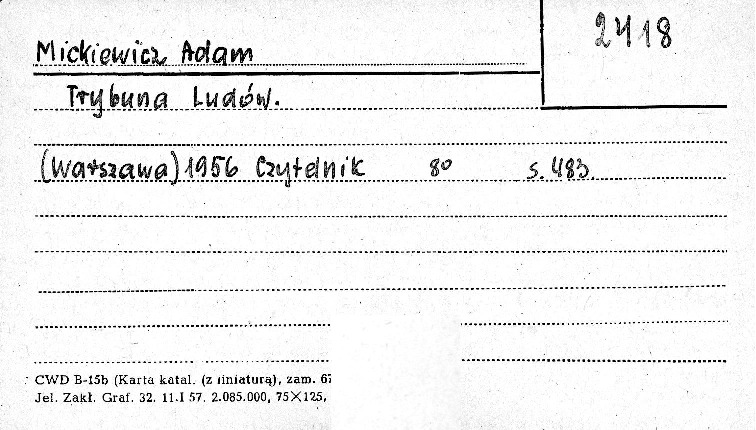 2418
Mickiewicz Adam
Trybuna Ludów.
(Warszawa) 1956 Czytelnik 8° s. 483.
CWD B-15b (Karta katal. (z liniaturą), zam. 67
Jel. Zakł. Graf. 32. 11.I 57. 2.085.000, 75×125,